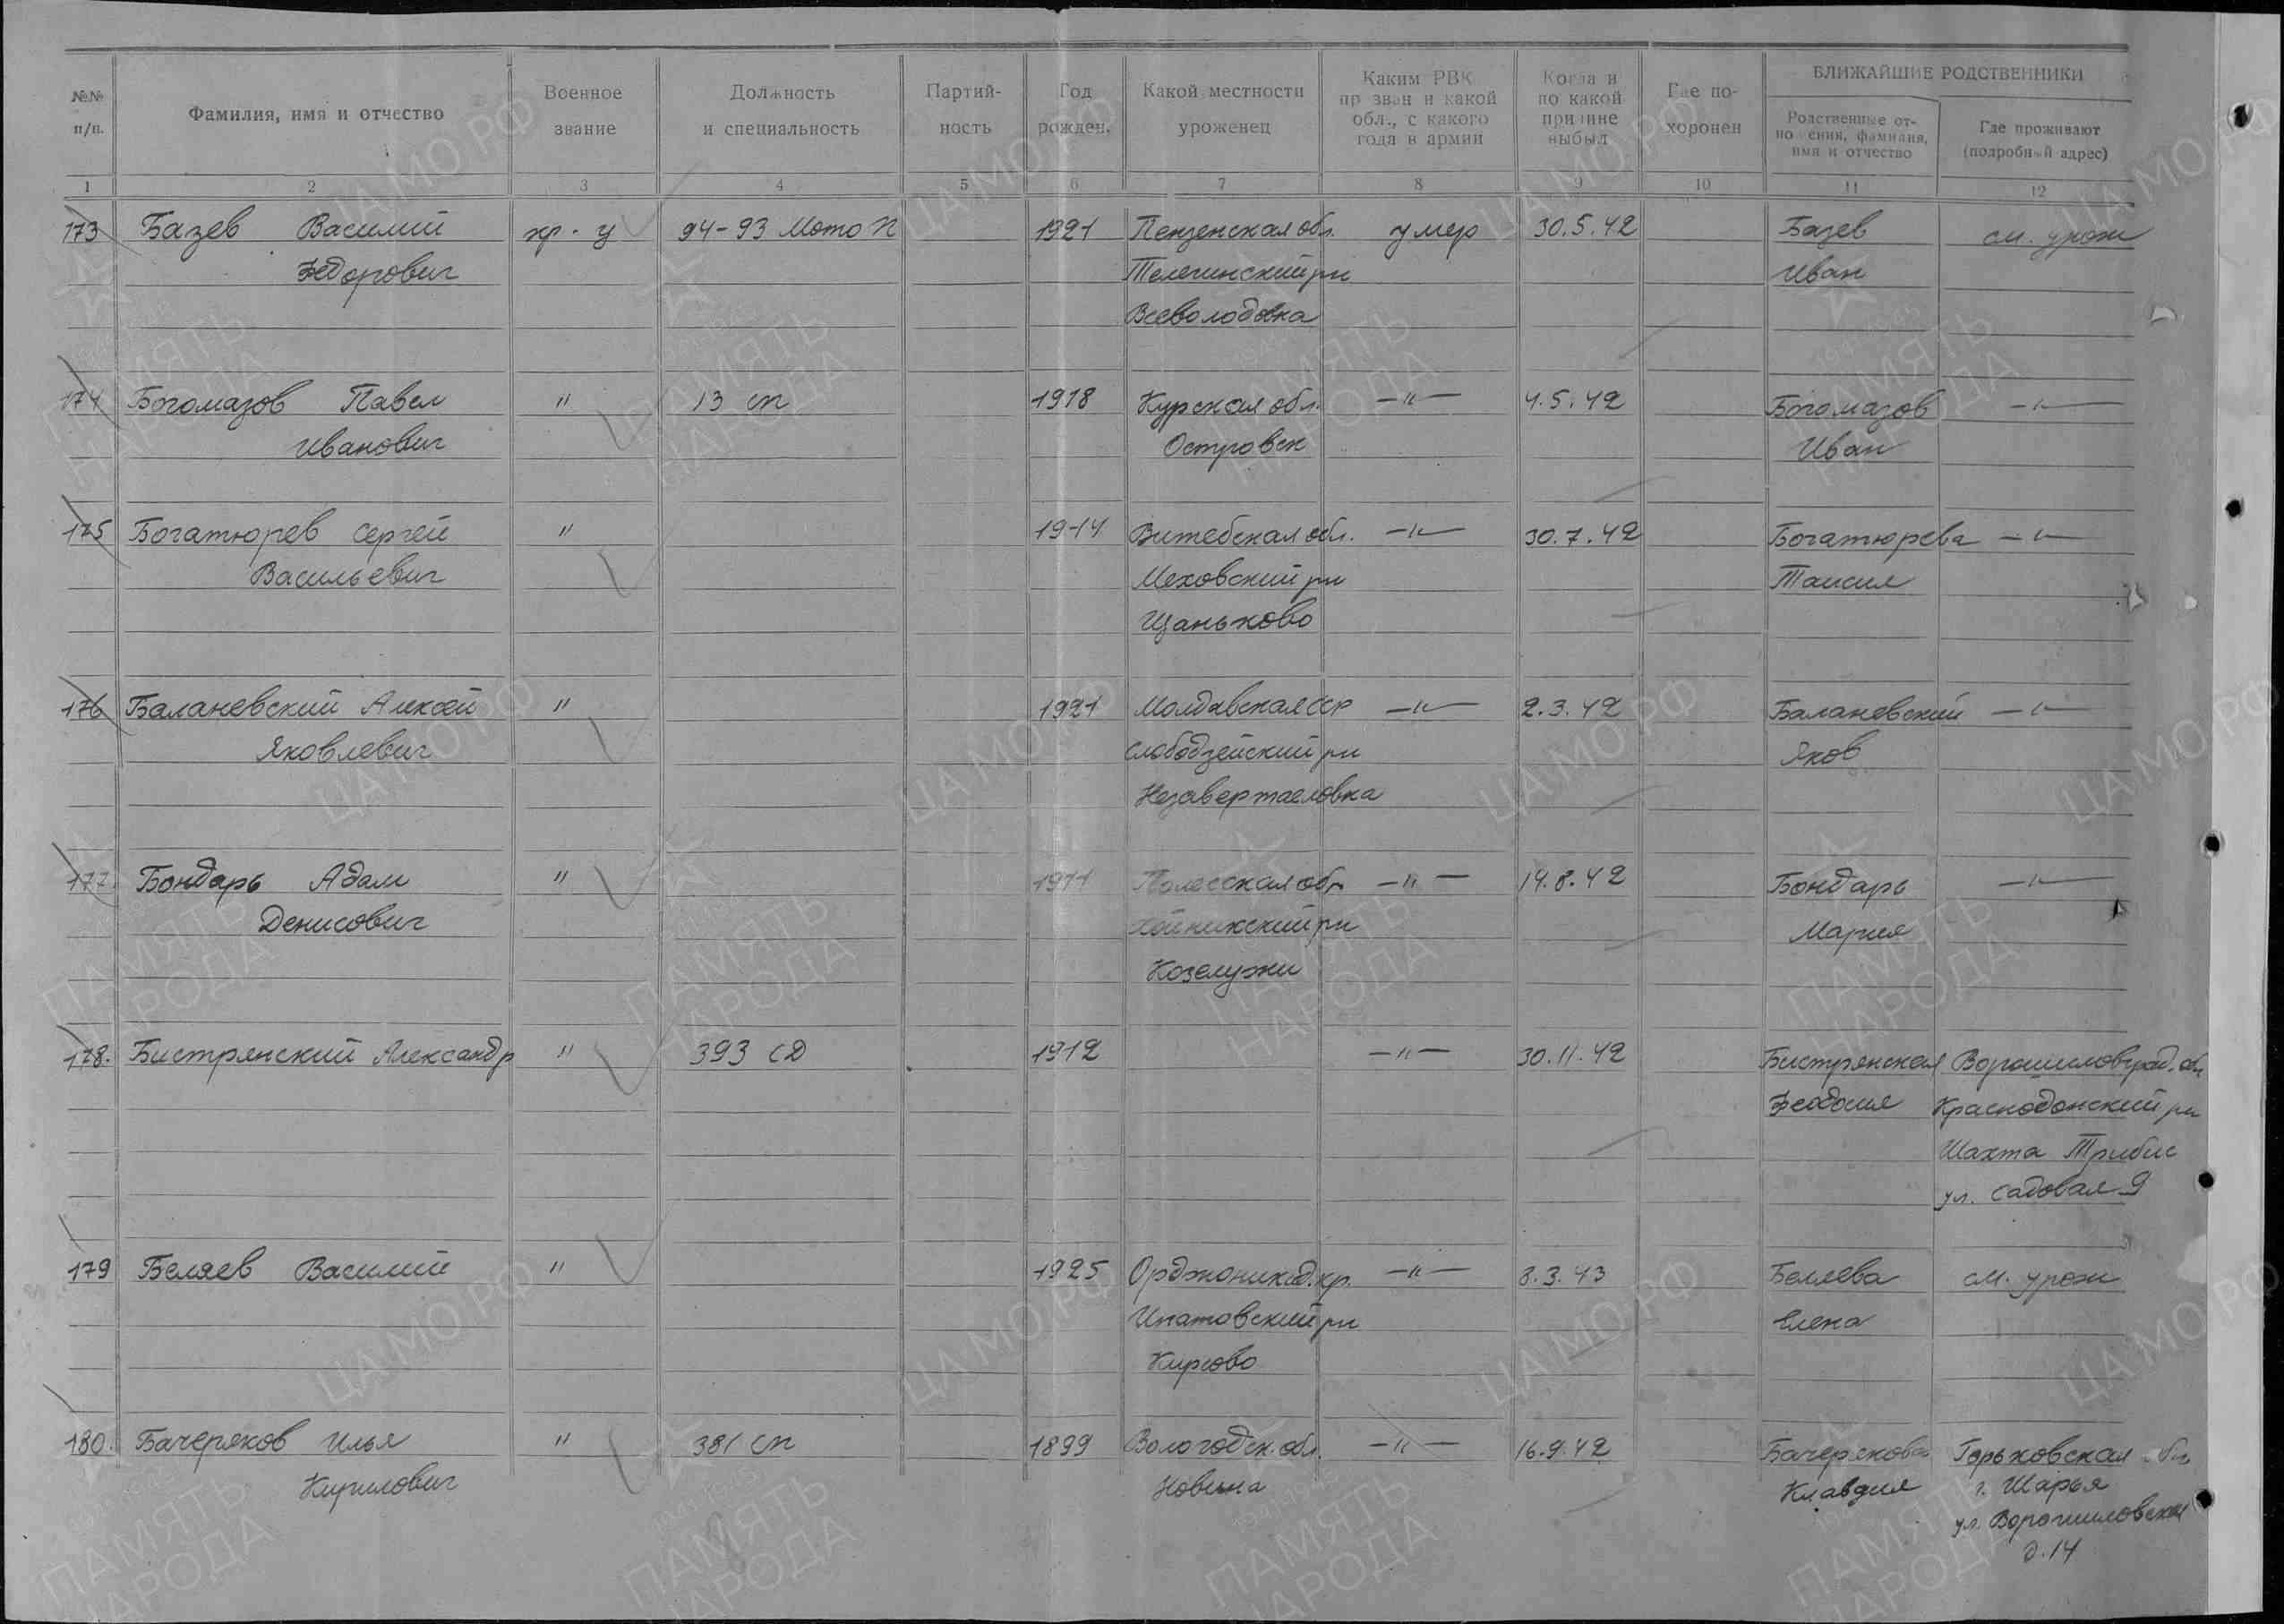 №№ п/п. Фамилия, имя и отчество Военное звание Должность и специальность Партий-ность Год рожден. Какой местности уроженец Каким РВК призван и какой обл., с какого года в армии Когда и по какой причине выбыл Где по-хоронен БЛИЖАЙШИЕ РОДСТВЕННИКИ
Родственные от-ношения, фамилия, имя и отчество Где проживают (подробный адрес)
1 2 3 4 5 6 7 8 9 10 11 12
173 Базев Василий кр-ц 94-93 Мото п 1921 Пензенская обл. умер 30.5.42 Базев см. урож
Федорович Телегинский рн Иван
Всеволодовка
174 Богомазов Павел " 13 сп 1918 Курская обл. —"— 4.5.42 Богомазов —"—
Иванович Островск Иван
175 Богатюрев Сергей " 1914 Витебская обл. —"— 30.7.42 Богатюрева —"—
Васильевич Меховский рн Таисия
Щаньково
176 Баланевский Алексей " 1921 Молдавская ССР —"— 2.3.42 Баланевский —"—
Яковлевич Слободзейский рн Яков
Незавертаеловка
177. Бондарь Адам " 1911 Полесская обл —"— 19.8.42 Бондарь —"—
Денисович Хойникский рн Мария
Козелужи
178. Быстрянский Александр " 393 СД 1912 —"— 30.11.42 Быстрянская Ворошиловград. обл
Феодосия Краснодонский рн
Шахта Трибис
ул. Садовая 9
179 Беляев Василий " 1925 Орджоникид. кр. —"— 8.3.43 Беляева см. урож
Ипатовский рн Елена
Кирово
180. Бачеряков Илья " 381 сп 1899 Вологодск. обл. —"— 16.9.42 Бачерякова Горьковская обл
Кирилович Новина Клавдия г. Шарья
ул. Ворошиловская
д. 14
ПАМЯТЬ НАРОДА
ЦАМО.РФ